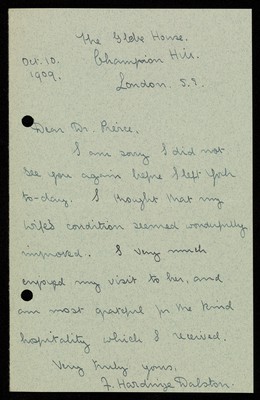 The Glebe House.
Oct. 10. Champion Hill.
1909.
London. S.E.
Dear Dr. Pierce.
I am sorry I did not
see you again before I left York
to-day. I thought that my
wife's condition seemed wonderfully
improved. I very much
enjoyed my visit to her, and
am most grateful for the kind
hospitality which I received.
Very truly yours,
F. Hardinge Dalston.